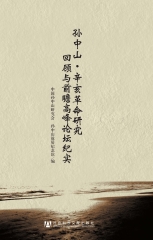 孙中山·辛亥革命研究
回顾与前瞻高峰论坛纪实
中国孙中山研究会 孙中山故居纪念馆 编